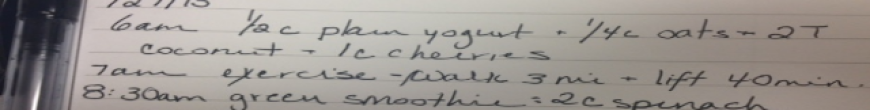 6am 1/2c plain yogurt + 1/4c oats + 2T
coconut + 1c cherries
7am exercise - walk 3 mi + lift 40min.
8:30am green smoothie: 2c spinach